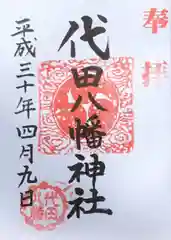 奉拝
代田八幡神社
平成三十年四月九日